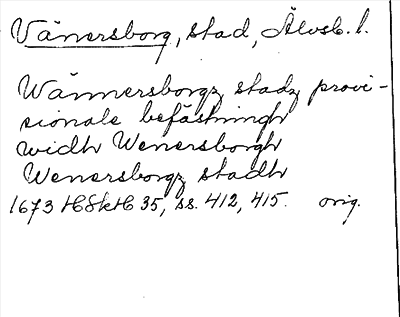 Vänersborg, stad, Älvsb. l.
Wännersborgz stadz provi-
sionale befästningh
widh Wenersborgh
Wenersborgz stadh
1673 HSkH 35, ss. 412, 415. orig.